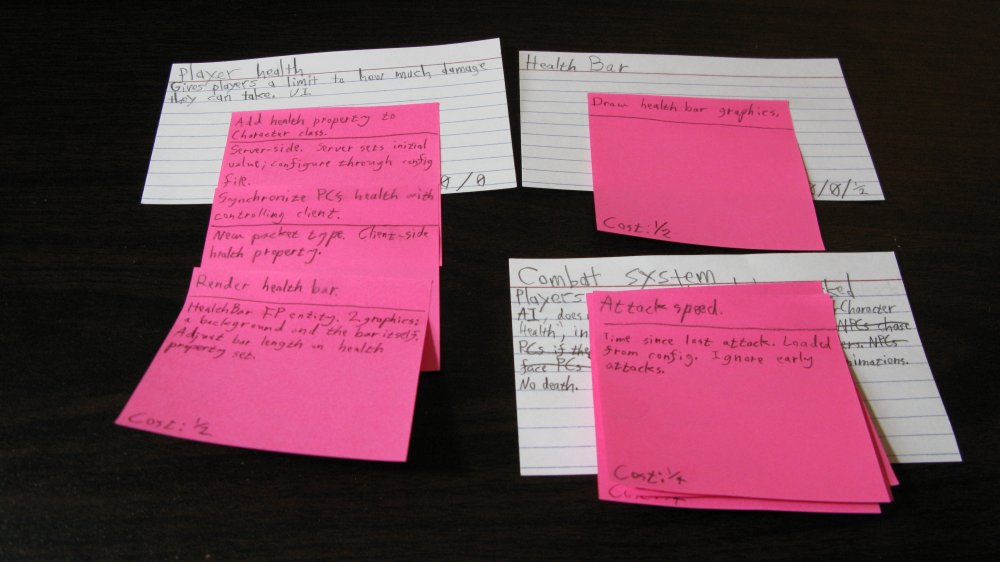 Player health
Gives players a limit to how much damage
they can take. UI
Add health property to
Character class.
Server-side. Server sets initial
value; configure through config
file.
Synchronize PCs health with
controlling client.
New packet type. Client-side
health property.
0/0
Render health bar.
HealthBar FP entity. 2 graphics:
a background and the bar itself.
Adjust bar length on health
property set.
Cost: 1/2
Health Bar
Draw health bar graphics.
Cost: 1/2
/0/1/2
Combat system
Players
AI, does
Health, in
PCs if the
face PCs
No death.
Character
NPCs chase
ers. NPCs
nimations.
Attack speed.
Time since last attack. Loaded
from config. Ignore early
attacks.
Cost: 1/4